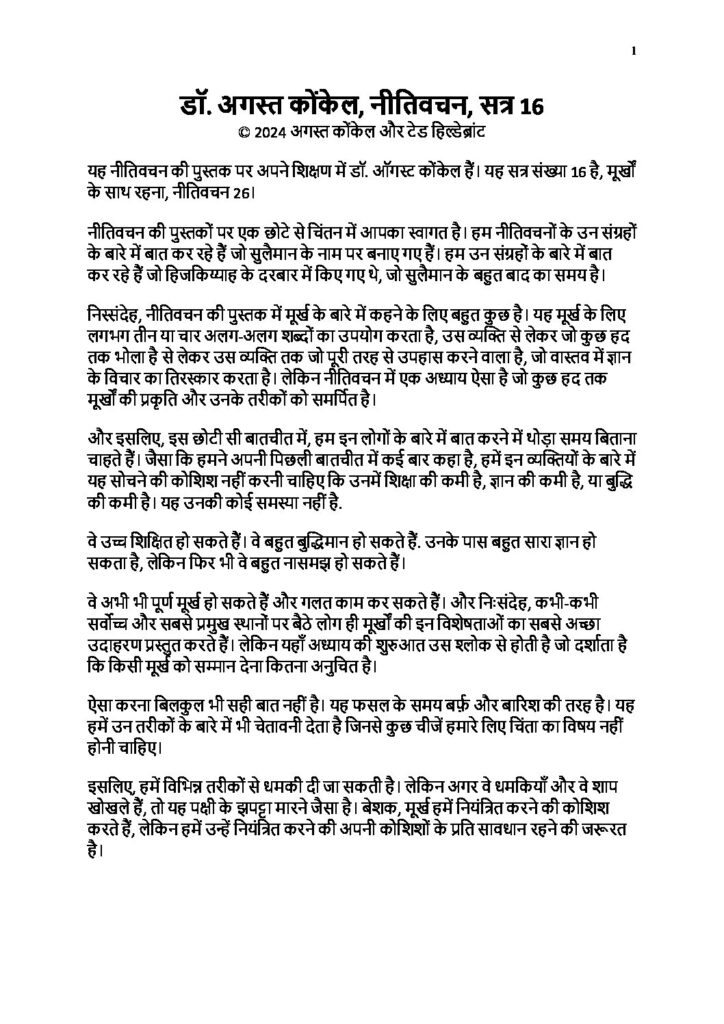 1
डॉ. अगस्त कोंकेल, नीतिवचन, सत्र 16
© 2024 अगस्त कोंकेल और टेड हिल्डेब्रांट
यह नीतिवचन की पुस्तक पर अपने शिक्षण में डॉ. ऑगस्ट कोंकेल हैं। यह सत्र संख्या 16 है, मूर्खों
के साथ रहना, नीतिवचन 26।
नीतिवचन की पुस्तकों पर एक छोटे से चिंतन में आपका स्वागत है। हम नीतिवचनों के उन संग्रहों
के बारे में बात कर रहे हैं जो सुलैमान के नाम पर बनाए गए हैं। हम उन संग्रहों के बारे में बात
कर रहे हैं जो हिजकिय्याह के दरबार में किए गए थे, जो सुलैमान के बहुत बाद का समय है।
निस्संदेह, नीतिवचन की पुस्तक में मूर्ख के बारे में कहने के लिए बहुत कुछ है। यह मूर्ख के लिए
लगभग तीन या चार अलग-अलग शब्दों का उपयोग करता है, उस व्यक्ति से लेकर जो कुछ हद
तक भोला है से लेकर उस व्यक्ति तक जो पूरी तरह से उपहास करने वाला है, जो वास्तव में ज्ञान
के विचार का तिरस्कार करता है। लेकिन नीतिवचन में एक अध्याय ऐसा है जो कुछ हद तक
मूर्खों की प्रकृति और उनके तरीकों को समर्पित है।
और इसलिए, इस छोटी सी बातचीत में, हम इन लोगों के बारे में बात करने में थोड़ा समय बिताना
चाहते हैं। जैसा कि हमने अपनी पिछली बातचीत में कई बार कहा है, हमें इन व्यक्तियों के बारे में
यह सोचने की कोशिश नहीं करनी चाहिए कि उनमें शिक्षा की कमी है, ज्ञान की कमी है, या बुद्धि
की कमी है। यह उनकी कोई समस्या नहीं है.
वे उच्च शिक्षित हो सकते हैं। वे बहुत बुद्धिमान हो सकते हैं. उनके पास बहुत सारा ज्ञान हो
सकता है, लेकिन फिर भी वे बहुत नासमझ हो सकते हैं।
वे अभी भी पूर्ण मूर्ख हो सकते हैं और गलत काम कर सकते हैं। और निःसंदेह, कभी-कभी
सर्वोच्च और सबसे प्रमुख स्थानों पर बैठे लोग ही मूर्खों की इन विशेषताओं का सबसे अच्छा
उदाहरण प्रस्तुत करते हैं। लेकिन यहाँ अध्याय की शुरुआत उस श्लोक से होती है जो दर्शाता है
कि किसी मूर्ख को सम्मान देना कितना अनुचित है।
ऐसा करना बिलकुल भी सही बात नहीं है। यह फसल के समय बर्फ़ और बारिश की तरह है। यह
हमें उन तरीकों के बारे में भी चेतावनी देता है जिनसे कुछ चीजें हमारे लिए चिंता का विषय नहीं
होनी चाहिए।
इसलिए, हमें विभिन्न तरीकों से धमकी दी जा सकती है। लेकिन अगर वे धमकियाँ और वे शाप
खोखले हैं, तो यह पक्षी के झपट्टा मारने जैसा है। बेशक, मूर्ख हमें नियंत्रित करने की कोशिश
करते हैं, लेकिन हमें उन्हें नियंत्रित करने की अपनी कोशिशों के प्रति सावधान रहने की जरूरत
है।